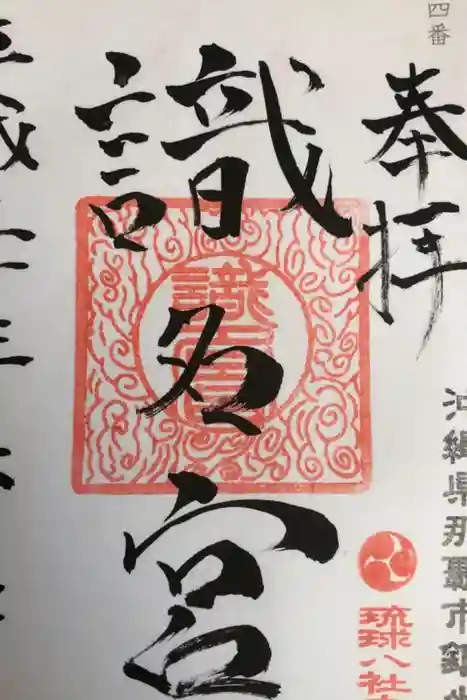 四番
奉拝
沖縄県那覇市
琉球八社
識名宮
識名宮